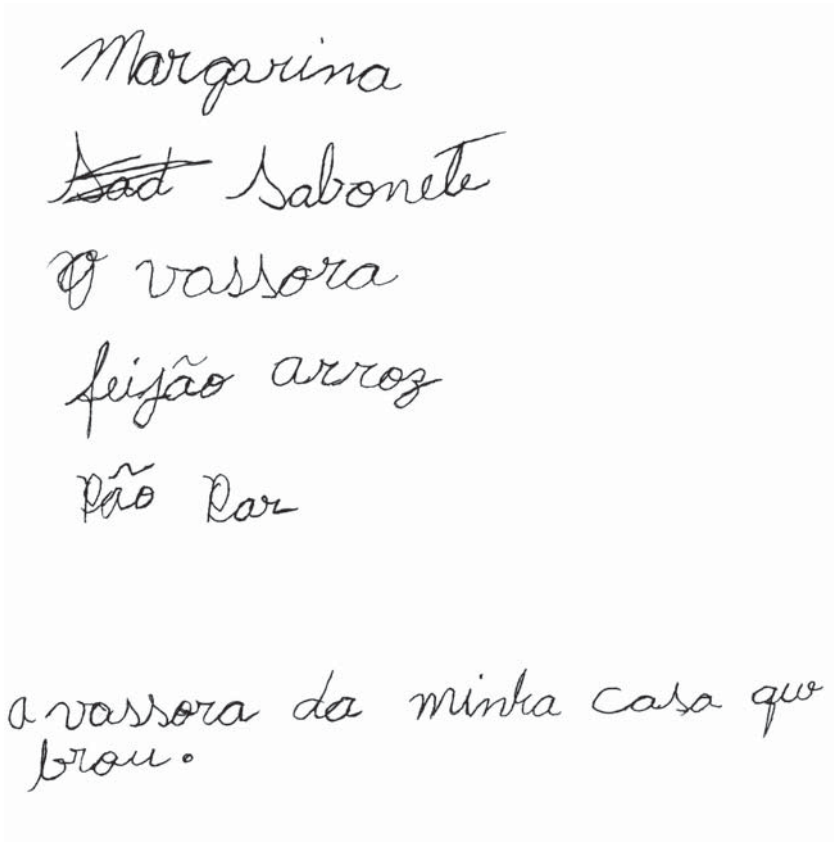 Margarina
sabonete
vassora
feijão arroz
Pão Par
a vassora da minha casa que
brou.